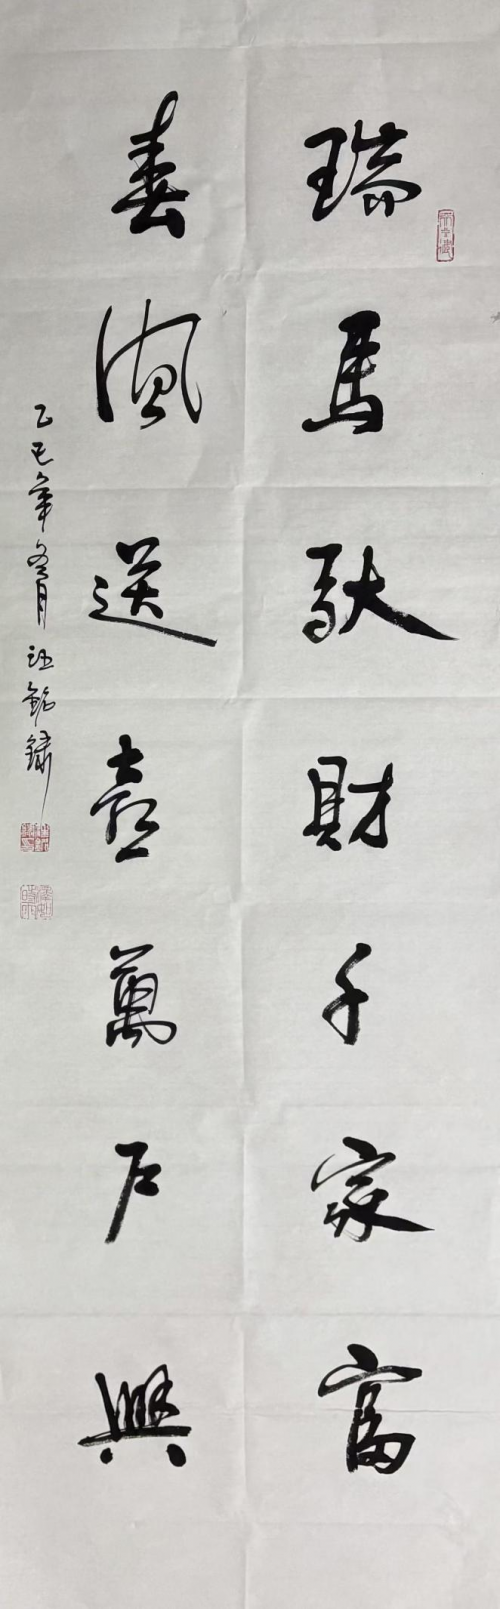 瑞馬馱財千家富
春風送喜萬戶興
乙巳年冬月 汪銘鏽